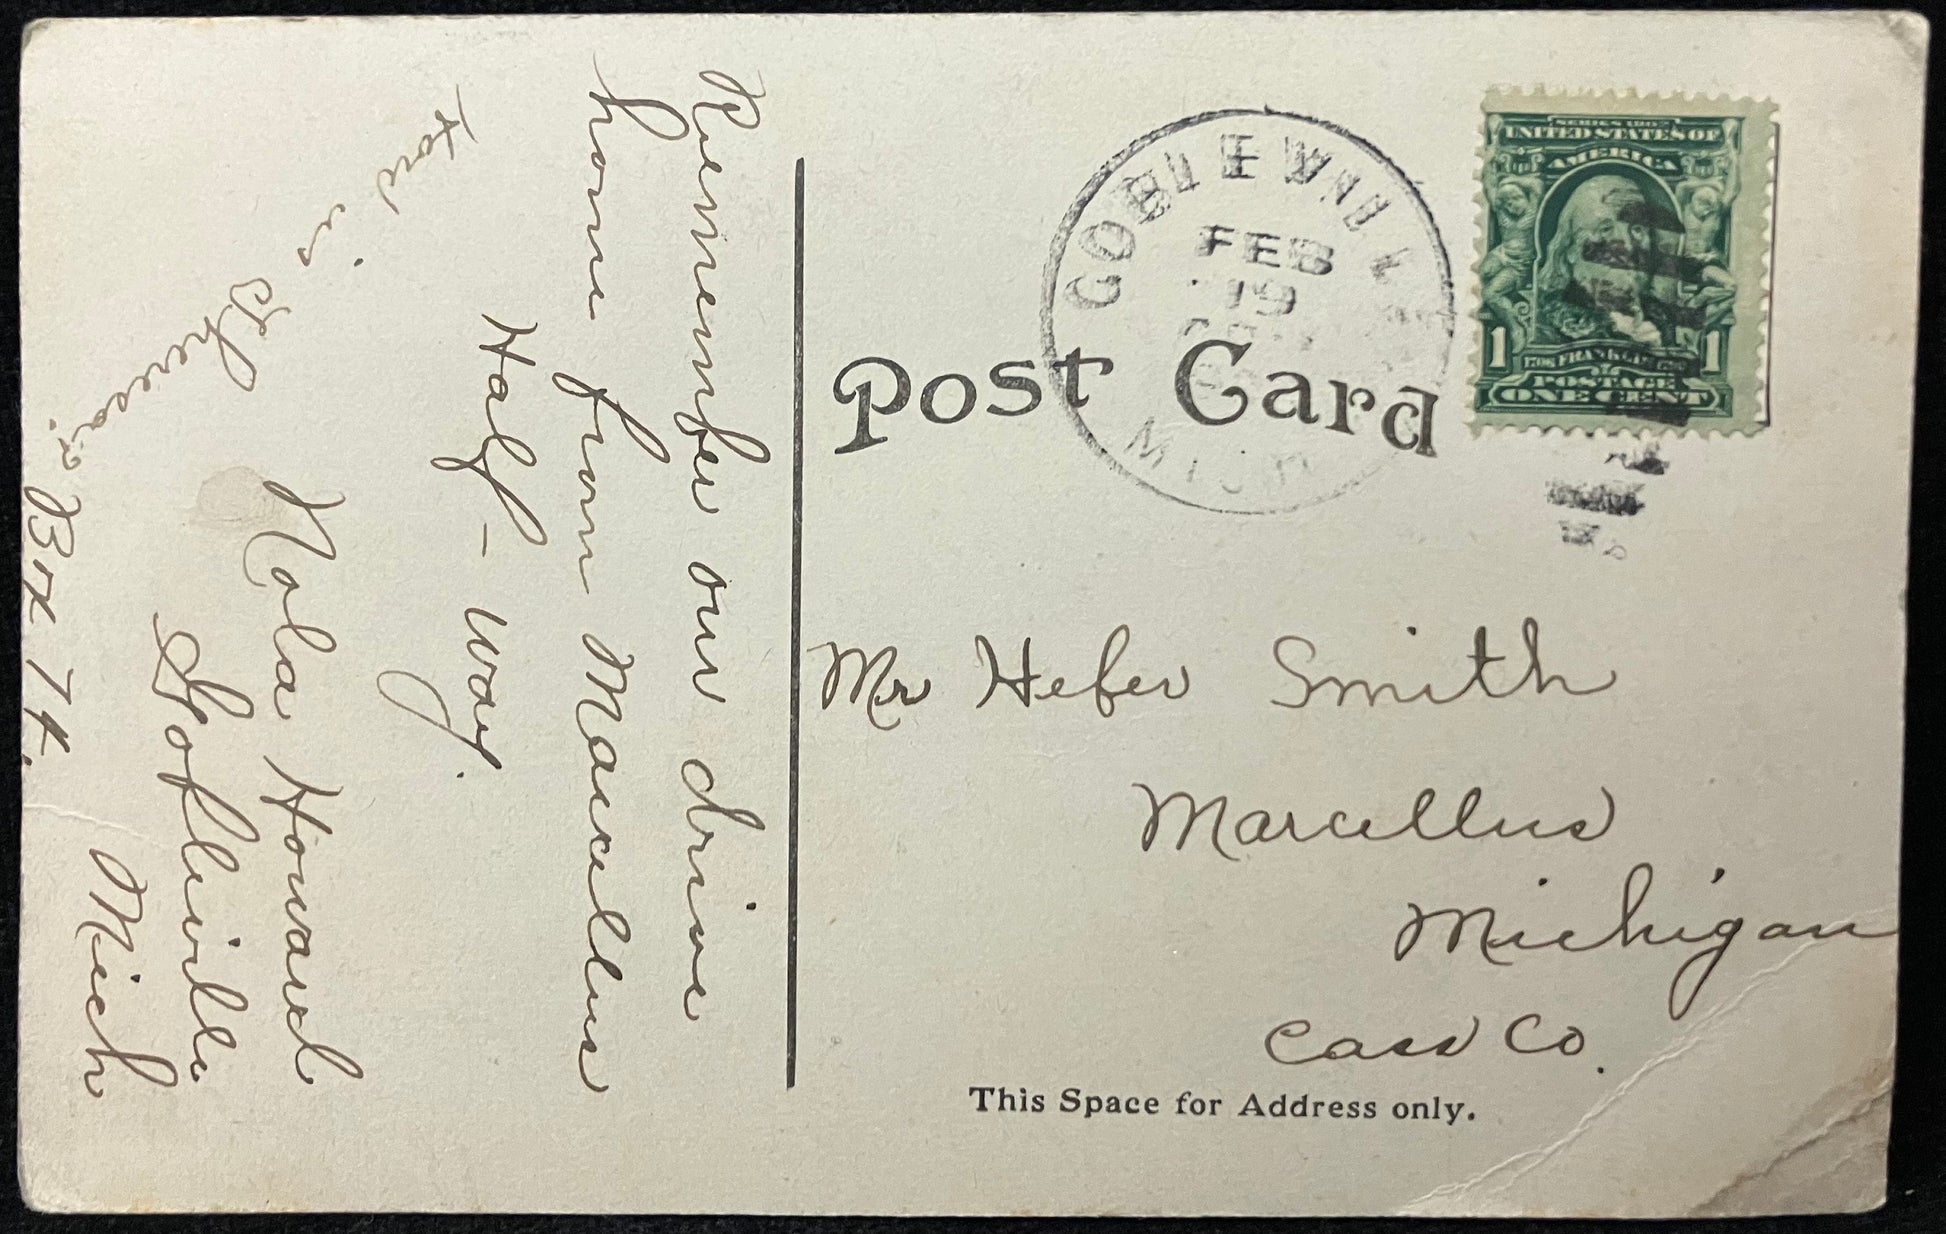 Remember our drive
home from Marcellus
Half-way.
How is
Nola Howard
Gobleville
Mich
Box 74.
Post Card
GOBLEVILLE
FEB
19
MICH
SERIES 1902
UNITED STATES OF
AMERICA
1 FRANKLIN 1
POSTAGE
ONE CENT
Mr Heber Smith
Marcellus
Michigan
Cass Co.
This Space for Address only.